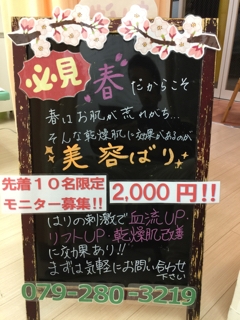 必見
春だからこそ
春はお肌が荒れがち…
そんな乾燥肌に効果があるのが
美容ばり
先着10名限定
モニター募集!!
2,000円!!
はりの刺激で血流UP・
リフトUP・乾燥肌改善
に効果あり!!
まずは気軽にお問い合わせ
下さい
079-280-3219